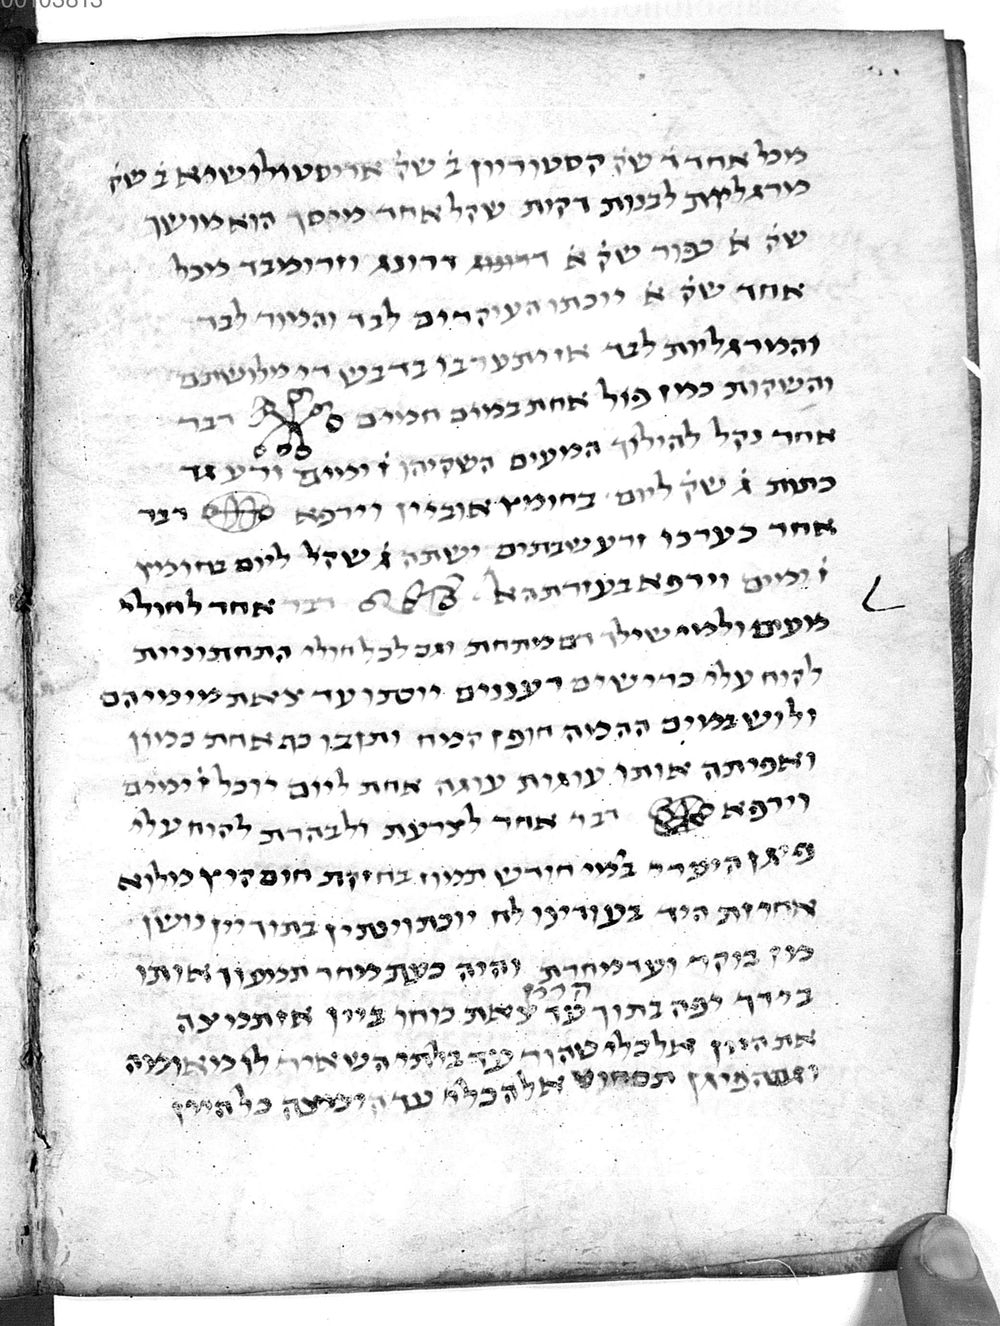 00103813
מכל אחד ד שק׳ קסטוריון ב׳ שק׳ ארוסטולושיא ב׳ שק׳
מרגליות לבנות דקות שקל אחד מוסך הוא מושך
שק׳ א׳ כפור שק׳ א׳ דרונג וזרומבד מכל
אחד שק׳ א׳ יוכתו העיקרים לבד והמור לבד
והמרגליות לבד או יתערבו בדבש די מלושתם
והשקות כמו פול אחת במים חמים דבר
אחר נקל להולוך המעים השקיהו ז׳ ימים זרע גד
כתות ג׳ שק׳ ליום בחומץ או ביין וירפא דבר
אחר כערכו זרע שבתים ישתה ג׳ שקל ליום בחומץ
ז׳ ימים וירפא בעזרת הא׳ דבר אחד לחולי
מועים ולמי שילך דם מתחת וגם לכל חולי התחתוניות
לקוח עלי כרישים רעננים יוסתו עד צאת מימיהם
ולוש במים ההמה חופן קמח ותן בו כף אחת כמון
ואפיתה אותו עוגות עוגה אחת ליום יוכל ז׳ ימים
וירפא דבר אחד לצרעת ולבהרת לקוח עלי
פיגן היפרי במי חודש תמוז בחזקת חום קיץ מלוא
אחוזת היד בעודינו לח יוכת ויטנין בתוך יין נושן
מן בוקר ועד מחרת והיה כעת מחר תמעוך אותו
בידך יפה בתוך היין עד צאת כוחו ביין אז תמצה
את היין אל כלי טהור עד בלתי השאיר לו מאומה
הפיגן תסחוט אל הכלי עד הימצה כל היין